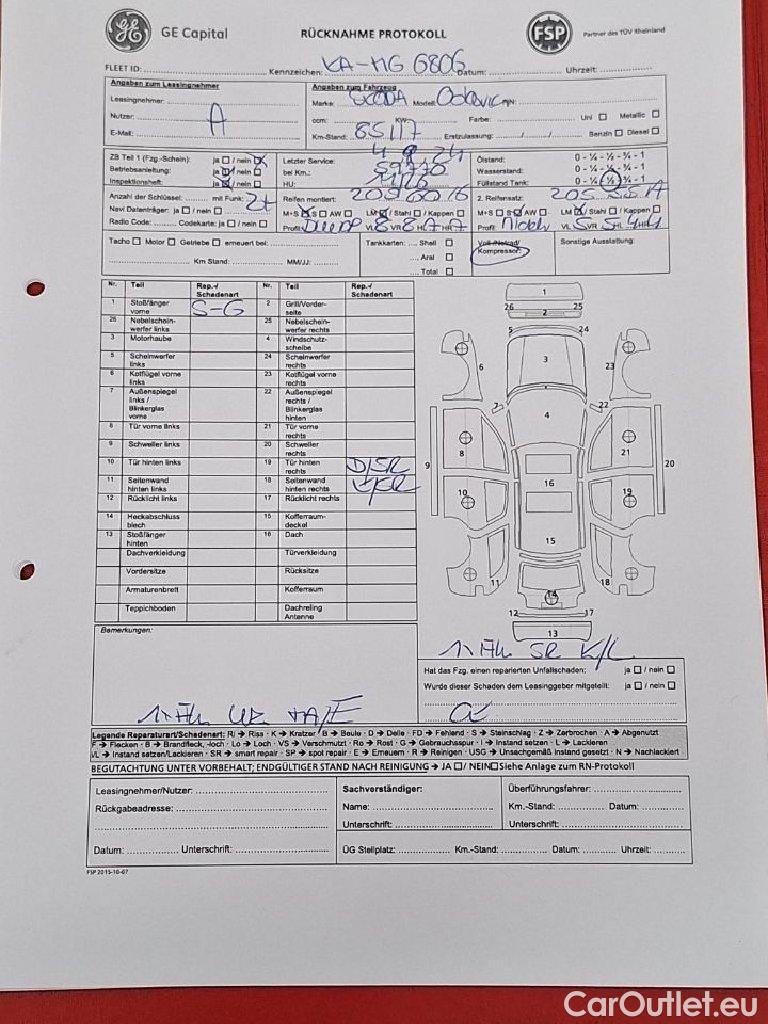 GE Capital
RÜCKNAHME PROTOKOLL
FSP
Partner des TÜV Rheinland
FLEET ID: Kennzeichen: KA-MG 6806 Datum: Uhrzeit:
Angaben zum Leasingnehmer
Leasingnehmer:
Nutzer: A
E-Mail:
Angaben zum Fahrzeug
Marke: SKODA Modell: Octavia
ccm: KW: Farbe: Uni Metallic
Km-Stand: 85117 Erstzulassung: / / Benzin Diesel
ZB Teil 1 (Fzg.-Schein): ja / nein
Betriebsanleitung: ja / nein
Inspektionsheft: ja / nein
Letzter Service:
bei Km.: 59770
HU:
Ölstand: 0 - ¼ - ½ - ¾ - 1
Wasserstand: 0 - ¼ - ½ - ¾ - 1
Füllstand Tank: 0 - ¼ - ½ - ¾ - 1
Anzahl der Schlüssel: mit Funk: 2x
Navi Datenträger: ja / nein
Radio Code: Codekarte: ja / nein
Reifen montiert: 205 60 16
M+S S AW LM / Stahl / Kappen
Profil: Dunlop VL 8 VR 8 HL 7 HR 7
2. Reifensatz: 205 55 17
M+S S AW LM / Stahl / Kappen
Profil: VL 5 VR 5 HL 4 HR 4
Tacho Motor Getriebe erneuert bei:
Km Stand: MM/JJ:
Tankkarten: Shell
Aral
Total
Voll-/Notrad/
Kompressor:
Sonstige Ausstattung:
Nr. Teil Rep.-/ Schadenart Nr. Teil Rep.-/ Schadenart
1 Stoßfänger vorne S-G 2 Grill/Vorderseite
26 Nebelscheinwerfer links 25 Nebelscheinwerfer rechts
3 Motorhaube 4 Windschutzscheibe
5 Scheinwerfer links 24 Scheinwerfer rechts
6 Kotflügel vorne links 23 Kotflügel vorne rechts
7 Außenspiegel links / Blinkerglas vorne 22 Außenspiegel rechts / Blinkerglas hinten
8 Tür vorne links 21 Tür vorne rechts
9 Schweller links 20 Schweller rechts
10 Tür hinten links 19 Tür hinten rechts D/SR
11 Seitenwand hinten links 18 Seitenwand hinten rechts
12 Rücklicht links 17 Rücklicht rechts
14 Heckabschlussblech 15 Kofferraumdeckel
13 Stoßfänger hinten 16 Dach
Dachverkleidung Türverkleidung
Vordersitze Rücksitze
Armaturenbrett Kofferraum
Teppichboden Dachreling Antenne
1
26 25
2
5 24
3
6 23
7 22
4
8 21
9 20
16
10 19
15
11 18
14
12 17
13
Bemerkungen:
Hat das Fzg. einen reparierten Unfallschaden: ja / nein
Wurde dieser Schaden dem Leasinggeber mitgeteilt: ja / nein
Legende Reparaturart/Schadenart: RI → Riss · K → Kratzer · B → Beule · D → Delle · FD → Fehlend · S → Steinschlag · Z → Zerbrochen · A → Abgenutzt
F → Flecken · B → Brandfleck, -loch · Lo → Loch · VS → Verschmutzt · Ro → Rost · G → Gebrauchsspur · I → Instand setzen · L → Lackieren
I/L → Instand setzen/Lackieren · SR → smart repair · SP → spot repair · E → Erneuern · R → Reinigen · USG → Unsachgemäß instand gesetzt · N → Nachlackiert
BEGUTACHTUNG UNTER VORBEHALT; ENDGÜLTIGER STAND NACH REINIGUNG → JA / NEIN Siehe Anlage zum RN-Protokoll
Leasingnehmer/Nutzer:
Rückgabeadresse:
Datum: Unterschrift:
Sachverständiger:
Name:
Unterschrift:
Überführungsfahrer:
Km.-Stand: Datum:
Unterschrift:
ÜG Stellplatz: Km.-Stand: Datum: Uhrzeit:
FSP 2015-10-07
CarOutlet.eu